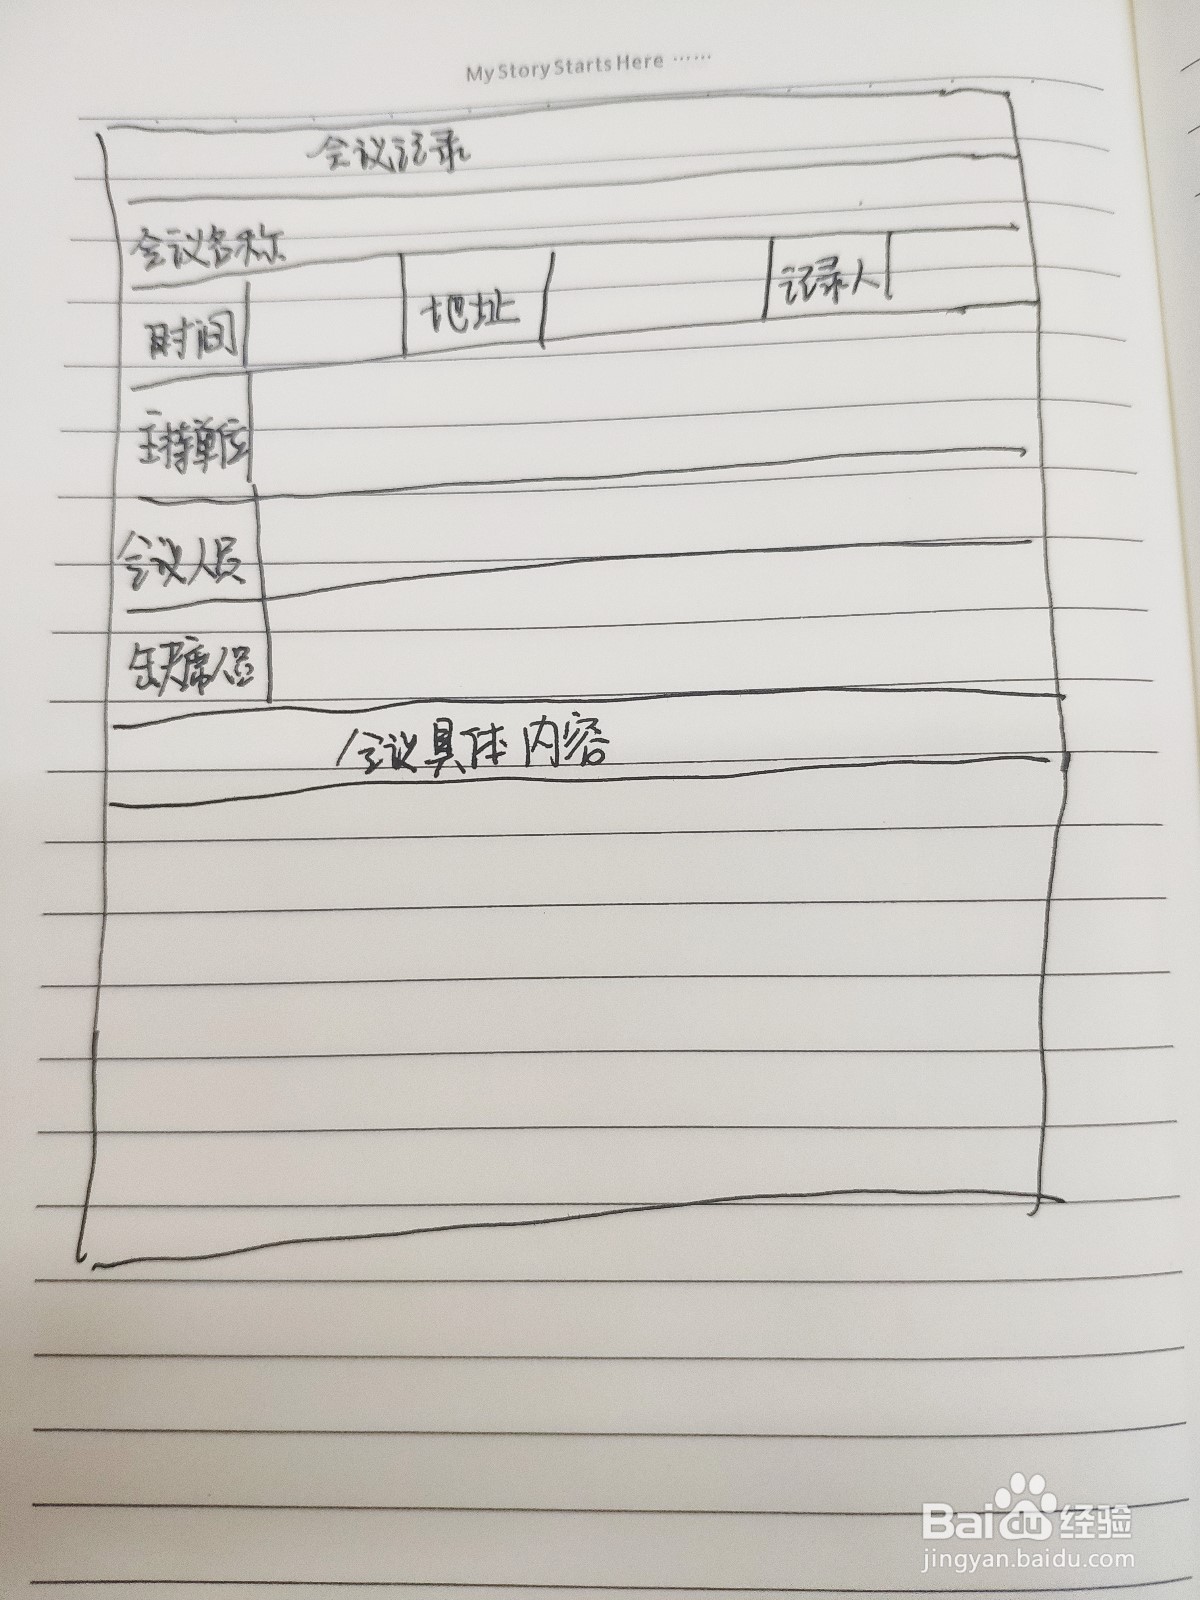 My Story Starts Here ······
会议记录
会议名称
时间 地址 记录人
主持单位
会议人员
缺席人员
会议具体内容
Baidu 经验
jingyan.baidu.com